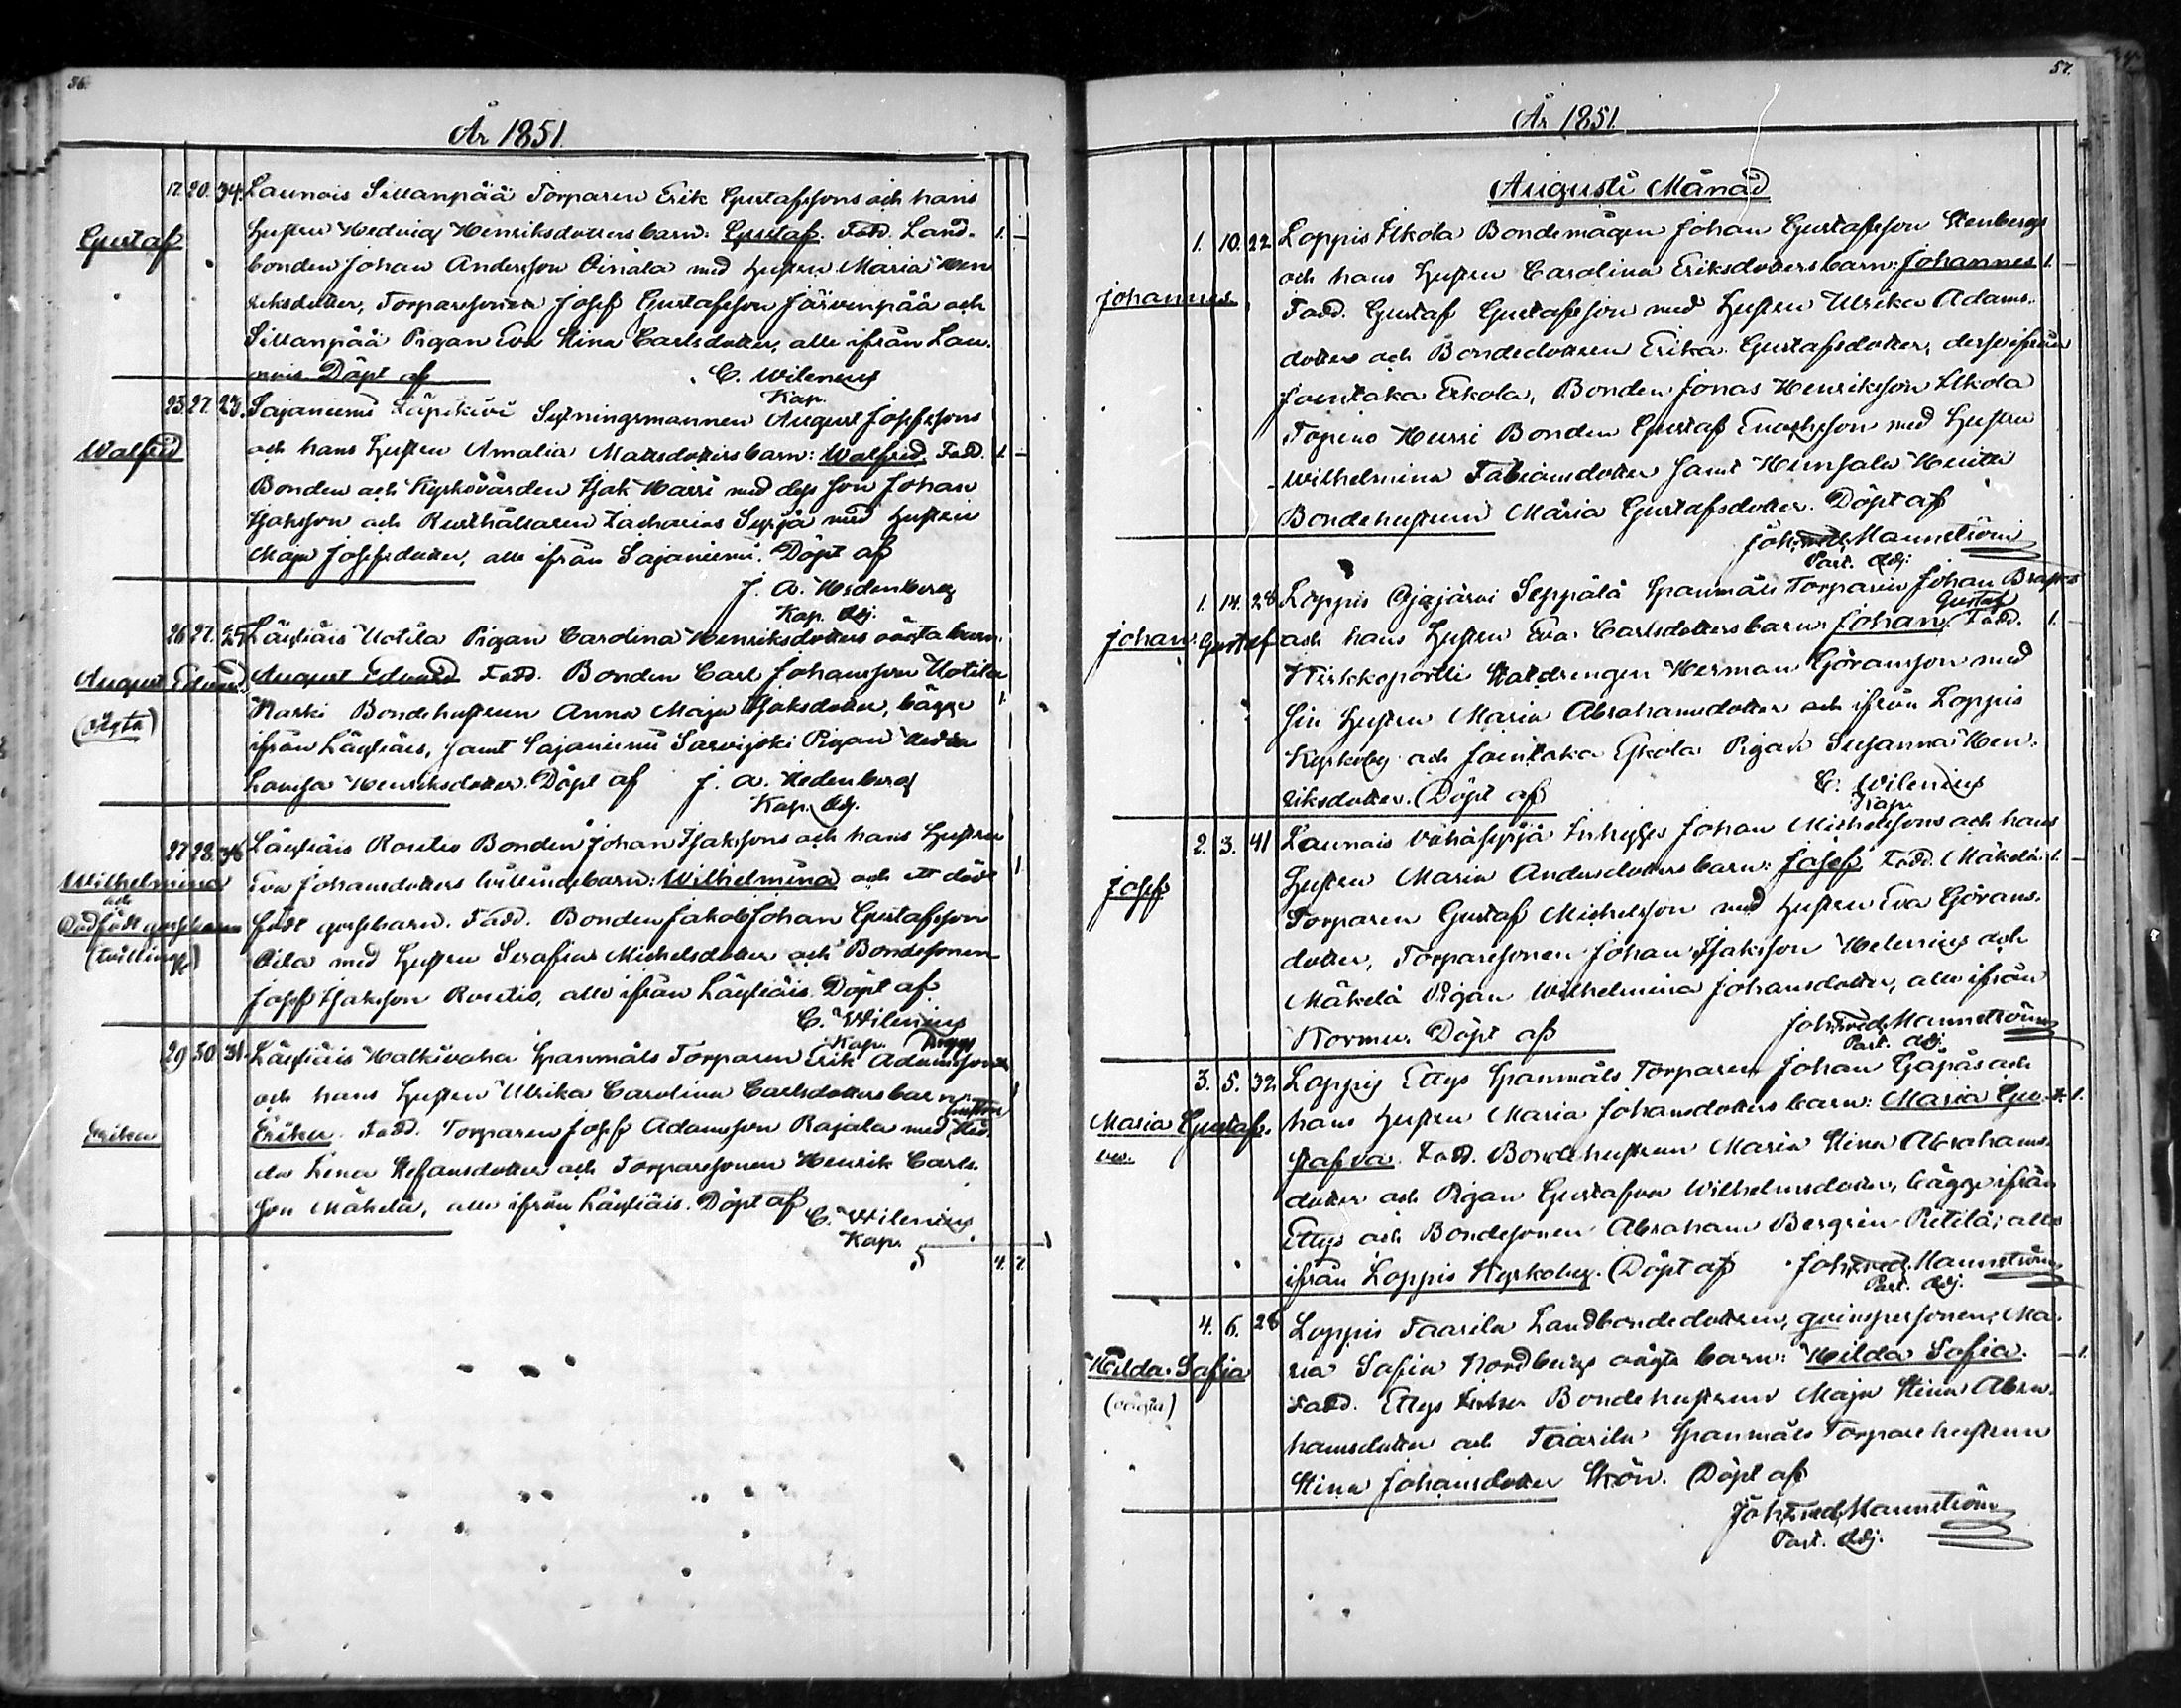 56.
År 1851.
17. 20. 34. Launois Sillanpää Torparen Erik Gustafssons och hans
Gustaf
Hustru Hedvig Henriksdotters barn: Gustaf. Fadd. Land- 1. –
bonden Johan Andersson Oinala med Hustru Maria Hen
riksdotter, Torparesonen Josef Gustafsson Järvenpää och
Sillanpää Pigan Eva Stina Carlsdotter, alle ifrån Lau-
nois. Döpt af C. Wilenius
Kap.
23. 27. 23. Sajaniemi Sytningsmannen August Josefssons
Walfrid
och hans Hustru Amalia Matsdotters barn: Walfrid. Fadd. 1. –
Bonden och Kyrkovärden Isak Härri med dess son Johan
Isaksson och Rusthållaren Zacharias Syrjä med Hustru
Maja Josefsdotter, alle ifrån Sajaniemi. Döpt af
J. A. Hedenberg
Kap. Adj.
26. 27. 25. Läyliäis Uotila Pigan Carolina Henriksdotters oäkta barn
August Edvard
August Edvard Fadd. Bonden Carl Johansson Uotila
(oägta)
Bondehustrun Anna Maja Isaksdotter, bägge 1.
ifrån Läyliäis, samt Sajaniemi Sarvijoki Pigan Hedda
Lovisa Henriksdotter. Döpt af J. A. Hedenberg
Kap. Adj.
27. 28. 36. Läyliäis Routio Bonden Johan Isakssons och hans Hustru
Wilhelmina
och
Eva Johansdotters tvillingbarn: Wilhelmina och ett död 1
Dödfödt gossebarn
födt gossbarn. Fadd. Bonden Jakob Johan Gustafsson
(tvillingr)
Oila med Hustru Serafia Michelsdotter och Bondesonen
Josef Isaksson Routio, alle ifrån Läyliäis. Döpt af
C. Wilenius
Kap.
29. 30. 31. Läyliäis Halkivaha Spanmåls Torparen Erik Adamssons
och hans Hustru Ulrika Carolina Carlsdotters barn 1
Hustru
Erika
Erika. Fadd. Torparen Josef Adamsson Rajala med Hed-
da Lena Stefansdotter och Torparesonen Henrik Carls-
son Mäkelä, alle ifrån Läyliäis. Döpt af C. Wilenius
Kap.
5 4. 7.
57.
År 1851.
Augusti Månad
1. 10. 22. Loppis Eskola Bondemågen Johan Gustafsson Stenbergs
och hans Hustru Carolina Eriksdotters barn: Johannes 1. –
Johannes
Fadd. Gustaf Gustafsson med Hustru Ulrika Adams-
dotter och Bondedottren Erika Gustafsdotter, desse ifrån
Joentaka Eskola, Bonden Jonas Henriksson Eskola
Topeno Heusi Bonden Gustaf Enochsson med Hustru
Wilhelmina Fabiansdotter samt Hunsala Heikka
Bondehustrun Maria Gustafsdotter. Döpt af
Joh. Fred. Mannström
Past. Adj.
1. 14. 28. Loppis Ojajärvi Seppälä Spanmåls Torparen Johan
Gustaf
Johan Gustaf
och hans Hustru Eva Carlsdotters barn: Johan. Fadd. 1. –
Kirkkoportti Statdrengen Herman Göransson med
sin Hustru Maria Abrahamsdotter och ifrån Loppis
Kyrkoby och Joentaka Eskola Pigan Susanna Hen-
riksdotter. Döpt af C. Wilenius
Kap.
2. 3. 41. Launois Vähäsyrjä Inhyses Johan Michelssons och hans
Josef
Hustru Maria Andersdotters barn: Josef Fadd. Mäkelä 1. –
Torparen Gustaf Michelsson med Hustru Eva Görans-
dotter, Torparesonen Johan Isaksson Helenius och
Mäkelä Pigan Wilhelmina Johansdotter, alle ifrån
Kormu. Döpt af Joh. Fred. Mannström
Past. Adj.
3. 5. 32. Loppis Ettys Spanmåls Torparen Johan och
Maria Gustaf-
va.
hans Hustru Maria Johansdotters barn: Maria Gu- – 1.
stafva. Fadd. Bondehustrun Maria Stina Abrahams-
dotter och Pigan Gustafva Wilhelmsdotter, bägge ifrån
Ettys och Bondesonen Abraham Bergrén Pietilä; alle
ifrån Loppis Kyrkoby. Döpt af Joh. Fred. Mannström
Past. Adj.
4. 6. 28. Loppis Taarila Landbondedottren, qvinspersonen, Ma-
Hilda Sofia
ria Sofia Nordbergs oägta barn: Hilda Sofia. – 1.
(oägta)
Fadd. Ettys Bondehustrun Maja Stina Abra-
hamsdotter och Taarila Spanmåls Torparehustrun
Stina Johansdotter Skön. Döpt af
Joh. Fred. Mannström
Past. Adj.